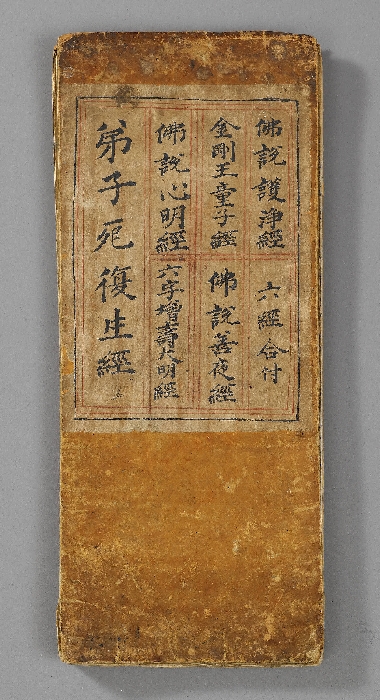 佛說護淨經 六經合付
金剛王童子經 佛說善夜經
佛說心明經 六字增壽大明經
弟子死復生經